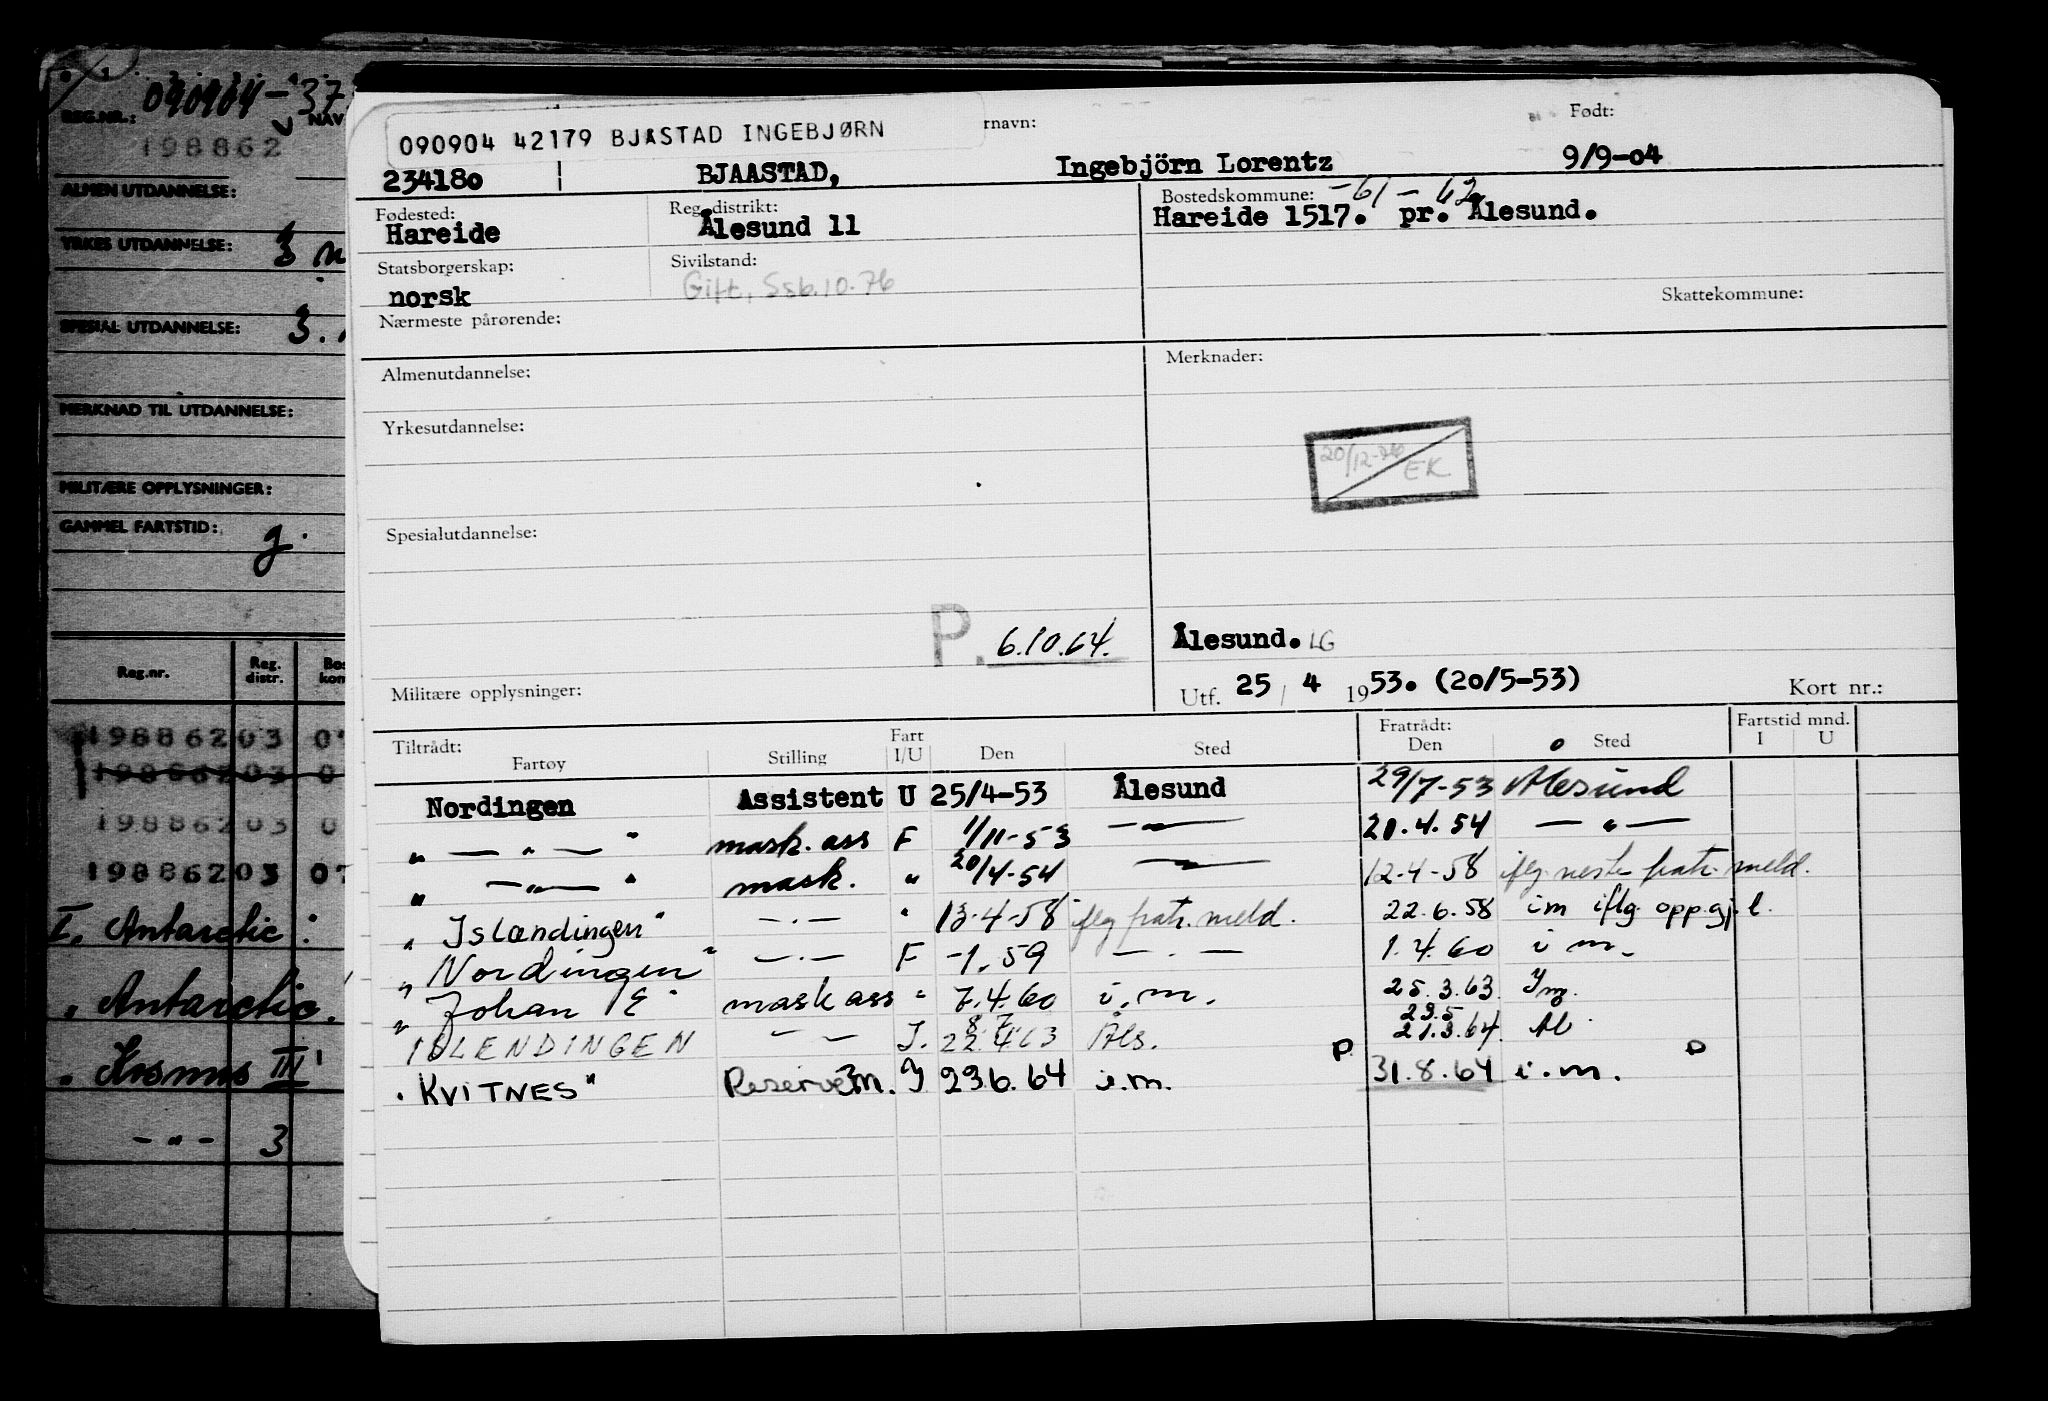 REG.NR.: 090904-37
NAV
198862
ALMEN UTDANNELSE:
YRKES UTDANNELSE: 3 m
SPESIAL UTDANNELSE: 3.
MERKNAD TIL UTDANNELSE:
MILITÆRE OPPLYSNINGER:
GAMMEL FARTSTID: g.
Reg.nr. Reg. distr. Bos kon
198862 03 07
198862 03 0
198862 03 0
198862 03 07
I. Antarctic
" Antarctic.
" Kosmos III
-"- 3
090904 42179 BJÅSTAD INGEBJØRN
rnavn: Født:
234180 BJAASTAD, Ingebjörn Lorentz 9/9-04
Fødested: Reg. distrikt: Bostedskommune: -61-62
Hareide Ålesund 11 Hareide 1517. pr. Ålesund.
Statsborgerskap: Sivilstand:
norsk Gift, Ssb.10.76
Nærmeste pårørende: Skattekommune:
Almenutdannelse: Merknader:
Yrkesutdannelse:
20/12-76 EK
Spesialutdannelse:
P. 6.10.64. Ålesund. LG
Militære opplysninger: Utf. 25 / 4 1953. (20/5-53) Kort nr.:
Tiltrådt: Fart Fratrådt: Fartstid mnd.
Fartøy Stilling I/U Den Sted Den Sted I U
Nordingen Assistent U 25/4-53 Ålesund 29/7-53 Ålesund
" — " — " mask. ass F 1/11-53 — " — 20.4.54 — " —
" — " — " mask. " 20/4-54 — " — 12-4-58 iflg neste fratr. meld.
" Islændingen" — " — " 13-4-58 iflg fratr. meld. 22.6.58 i m iflg. oppgj. l.
" Nordingen" — " — F -1.59 — " — 1.4.60 i m.
" Johan E" mask ass " 7.4.60 i.m. 25.3.63. I m.
ISLENDINGEN — " — I. 22.4.63 8 7 Åls. 21.3.64. 29.5 Ål.
" KVITNES" Reserve 3m. I 23.6.64 i.m. P 31.8.64 i.m.